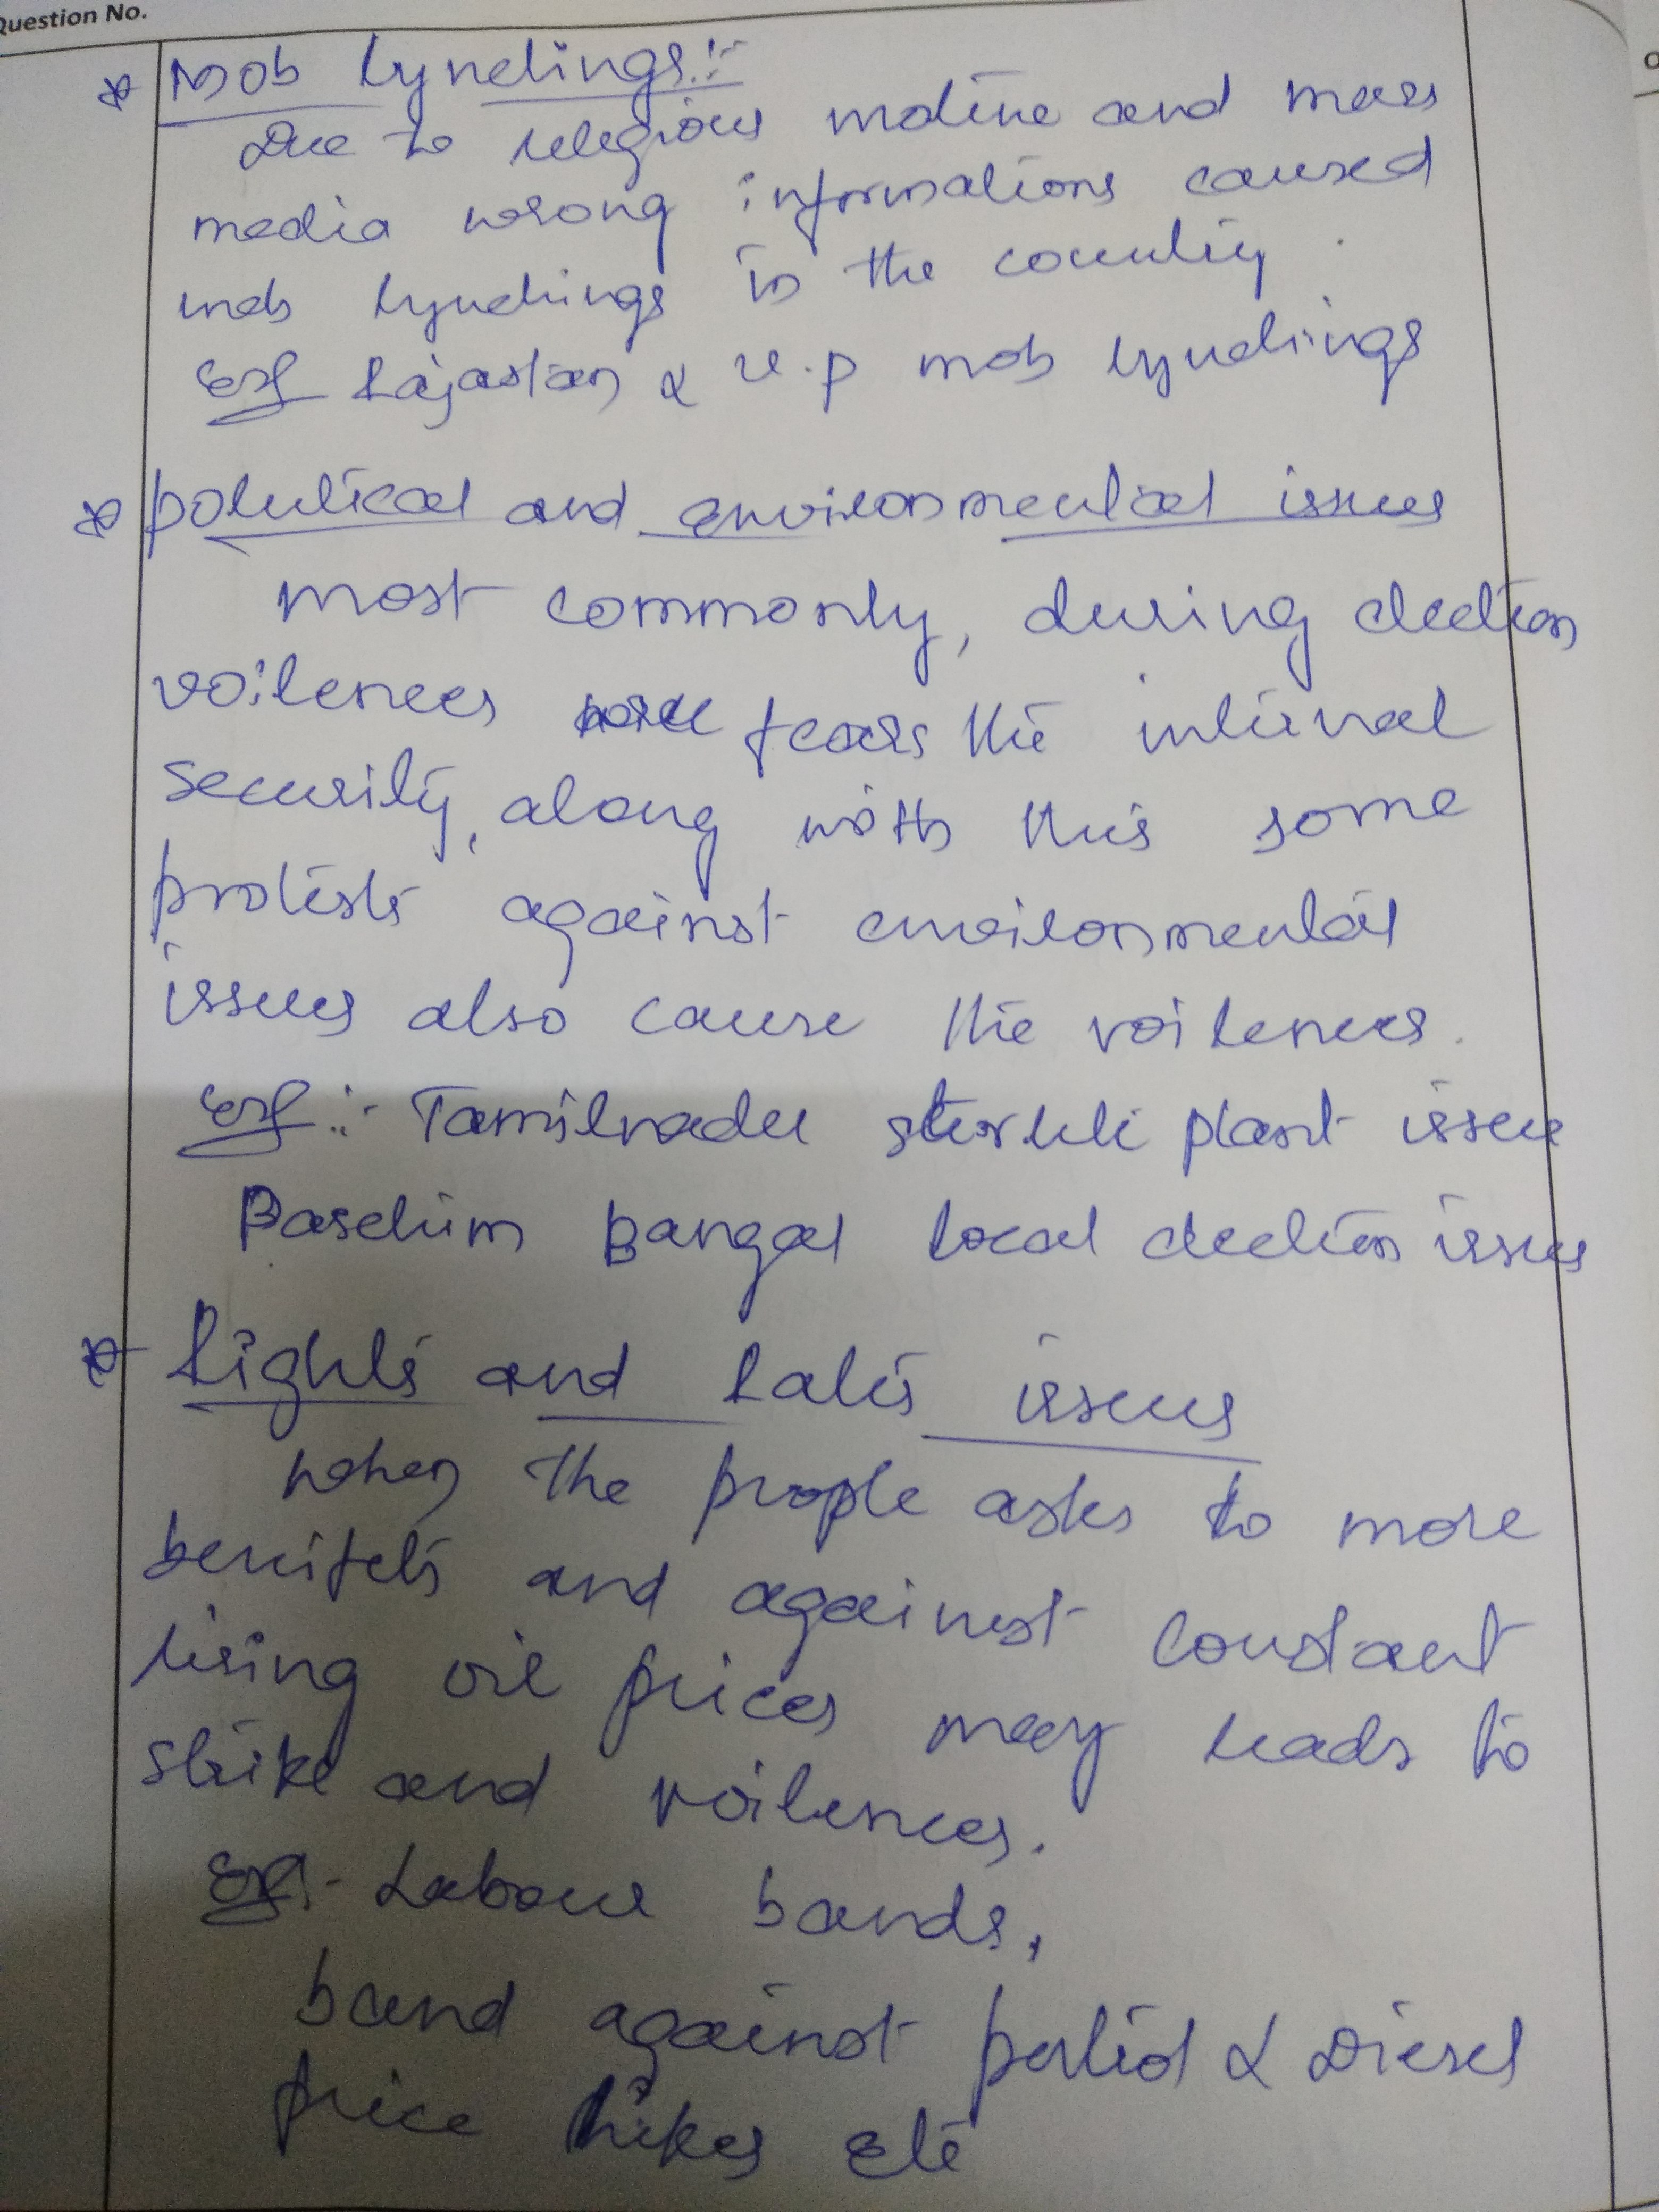 Question No.
* Mob Lynchings:-
Due to religious motive and mass
media wrong informations caused
mob lynchings in the country.
Ex:- Rajastan & U.P mob lynchings
* polutical and environmental issues
most commonly, during election
voilences fears the internal
security, along with this some
protests against environmental
issues also cause the voilences.
Ex:- Tamilnadu sterlite plant issue
Paschim Bangal local election issues
* Rights and Rates issues
when the people asks to more
benifets and against constant
rising oil prices may leads to
strike and voilences.
Ex:- Labour bands,
band against petrol & Diesel
price hikes etc